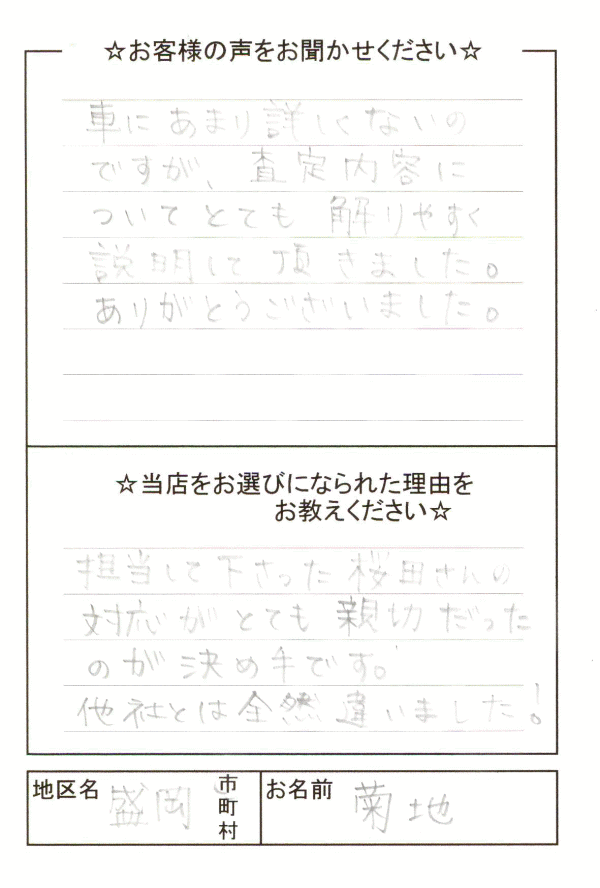 ☆お客様の声をお聞かせください☆
車にあまり詳しくないの
ですが、査定内容に
ついてとても解りやすく
説明して頂きました。
ありがとうございました。
☆当店をお選びになられた理由を
お教えください☆
担当して下さった桜田さんの
対応がとても親切だった
のが決め手です。
他社とは全然違いました!
地区名 盛岡 市町村 お名前 菊地